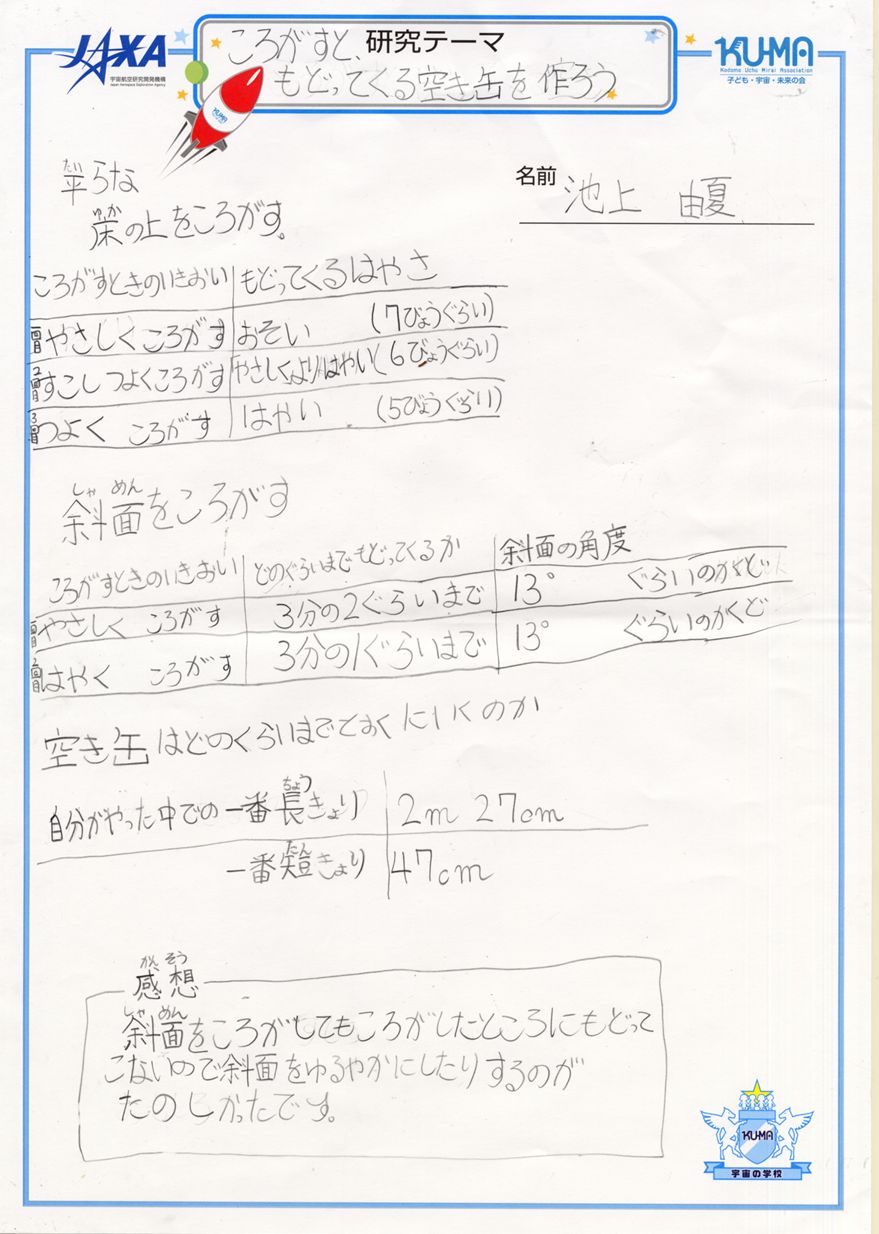 JAXA
宇宙航空研究開発機構
Japan Aerospace Exploration Agency
KU-MA
Kodomo Uchu Mirai Association
子ども・宇宙・未来の会
研究テーマ
ころがすと、
もどってくる空き缶を作ろう
KU-MA
名前 池上 由夏
平らな
たい
床の上をころがす。
ゆか
ころがすときのいきおい もどってくるはやさ
1回目 やさしく ころがす おそい (7びょうぐらい)
2回目 すこしつよくころがす やさしくよりはやい(6びょうぐらい)
3回目 つよく ころがす はやい (5びょうぐらい)
しゃ めん
斜面をころがす
ころがすときのいきおい どのぐらいまでもどってくるか 斜面の角度
1回目 やさしく ころがす 3分の2ぐらいまで 13° ぐらいのかくど
2回目 はやく ころがす 3分の1ぐらいまで 13° ぐらいのかくど
空き缶はどのくらいまでとおくにいくのか
ちょう
自分がやった中での一番長きょり 2m 27cm
たん
一番短きょり 47cm
かん そう
感想
しゃ めん
斜面をころがしてもころがしたところにもどって
こないので斜面をゆるやかにしたりするのが
たのしかったです。
KU-MA
宇宙の学校